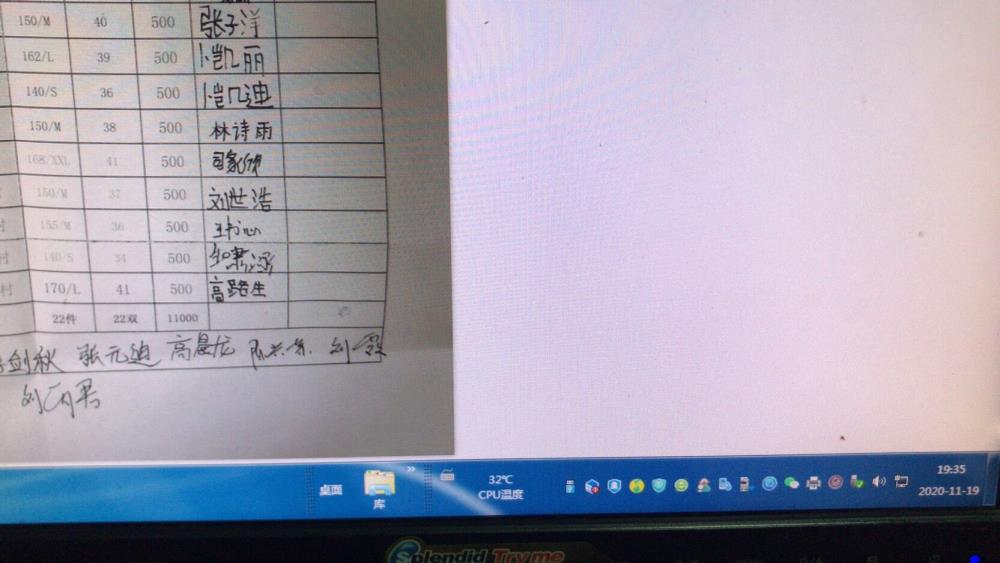 150/M 40 500 张子洋
162/L 39 500 恺丽
140/S 36 500 恺迪
150/M 38 500 林诗雨
168/XXL 41 500
150/M 37 500 刘世浩
村 155/M 36 500
村 140/S 34 500
村 170/L 41 500 高路生
22件 22双 11000
剑秋 张元迪 高晨龙 刘霞
刘
桌面 库 » 32℃ CPU温度 19:35 2020-11-19
Splendid Try me